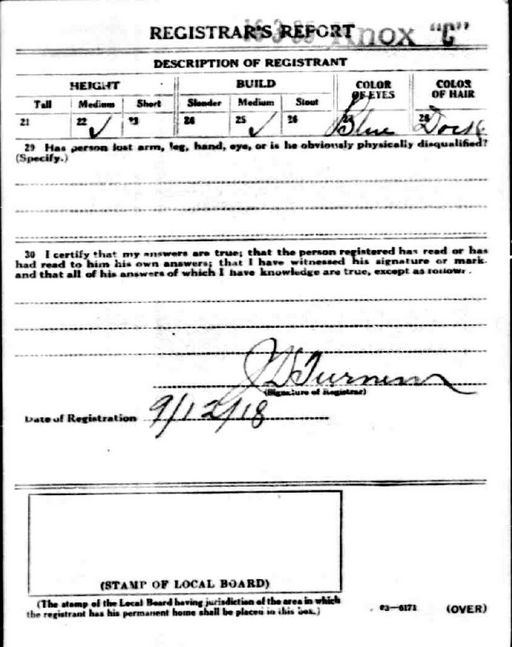 REGISTRAR'S REPORT 16-3-35 Knox "C"
DESCRIPTION OF REGISTRANT
HEIGHT BUILD COLOR OF EYES COLOR OF HAIR
Tall Medium Short Slender Medium Stout
21 22 ✓ 23 24 25 ✓ 26 27 Blue 28 Dark
29 Has person lost arm, leg, hand, eye, or is he obviously physically disqualified?
(Specify.)
30 I certify that my answers are true; that the person registered has read or has
had read to him his own answers; that I have witnessed his signature or mark
and that all of his answers of which I have knowledge are true, except as follows.
(Signature of Registrar)
Date of Registration 9/12/18
(STAMP OF LOCAL BOARD)
(The stamp of the Local Board having jurisdiction of the area in which
the registrant has his permanent home shall be placed in this box.)
03—6171 (OVER)